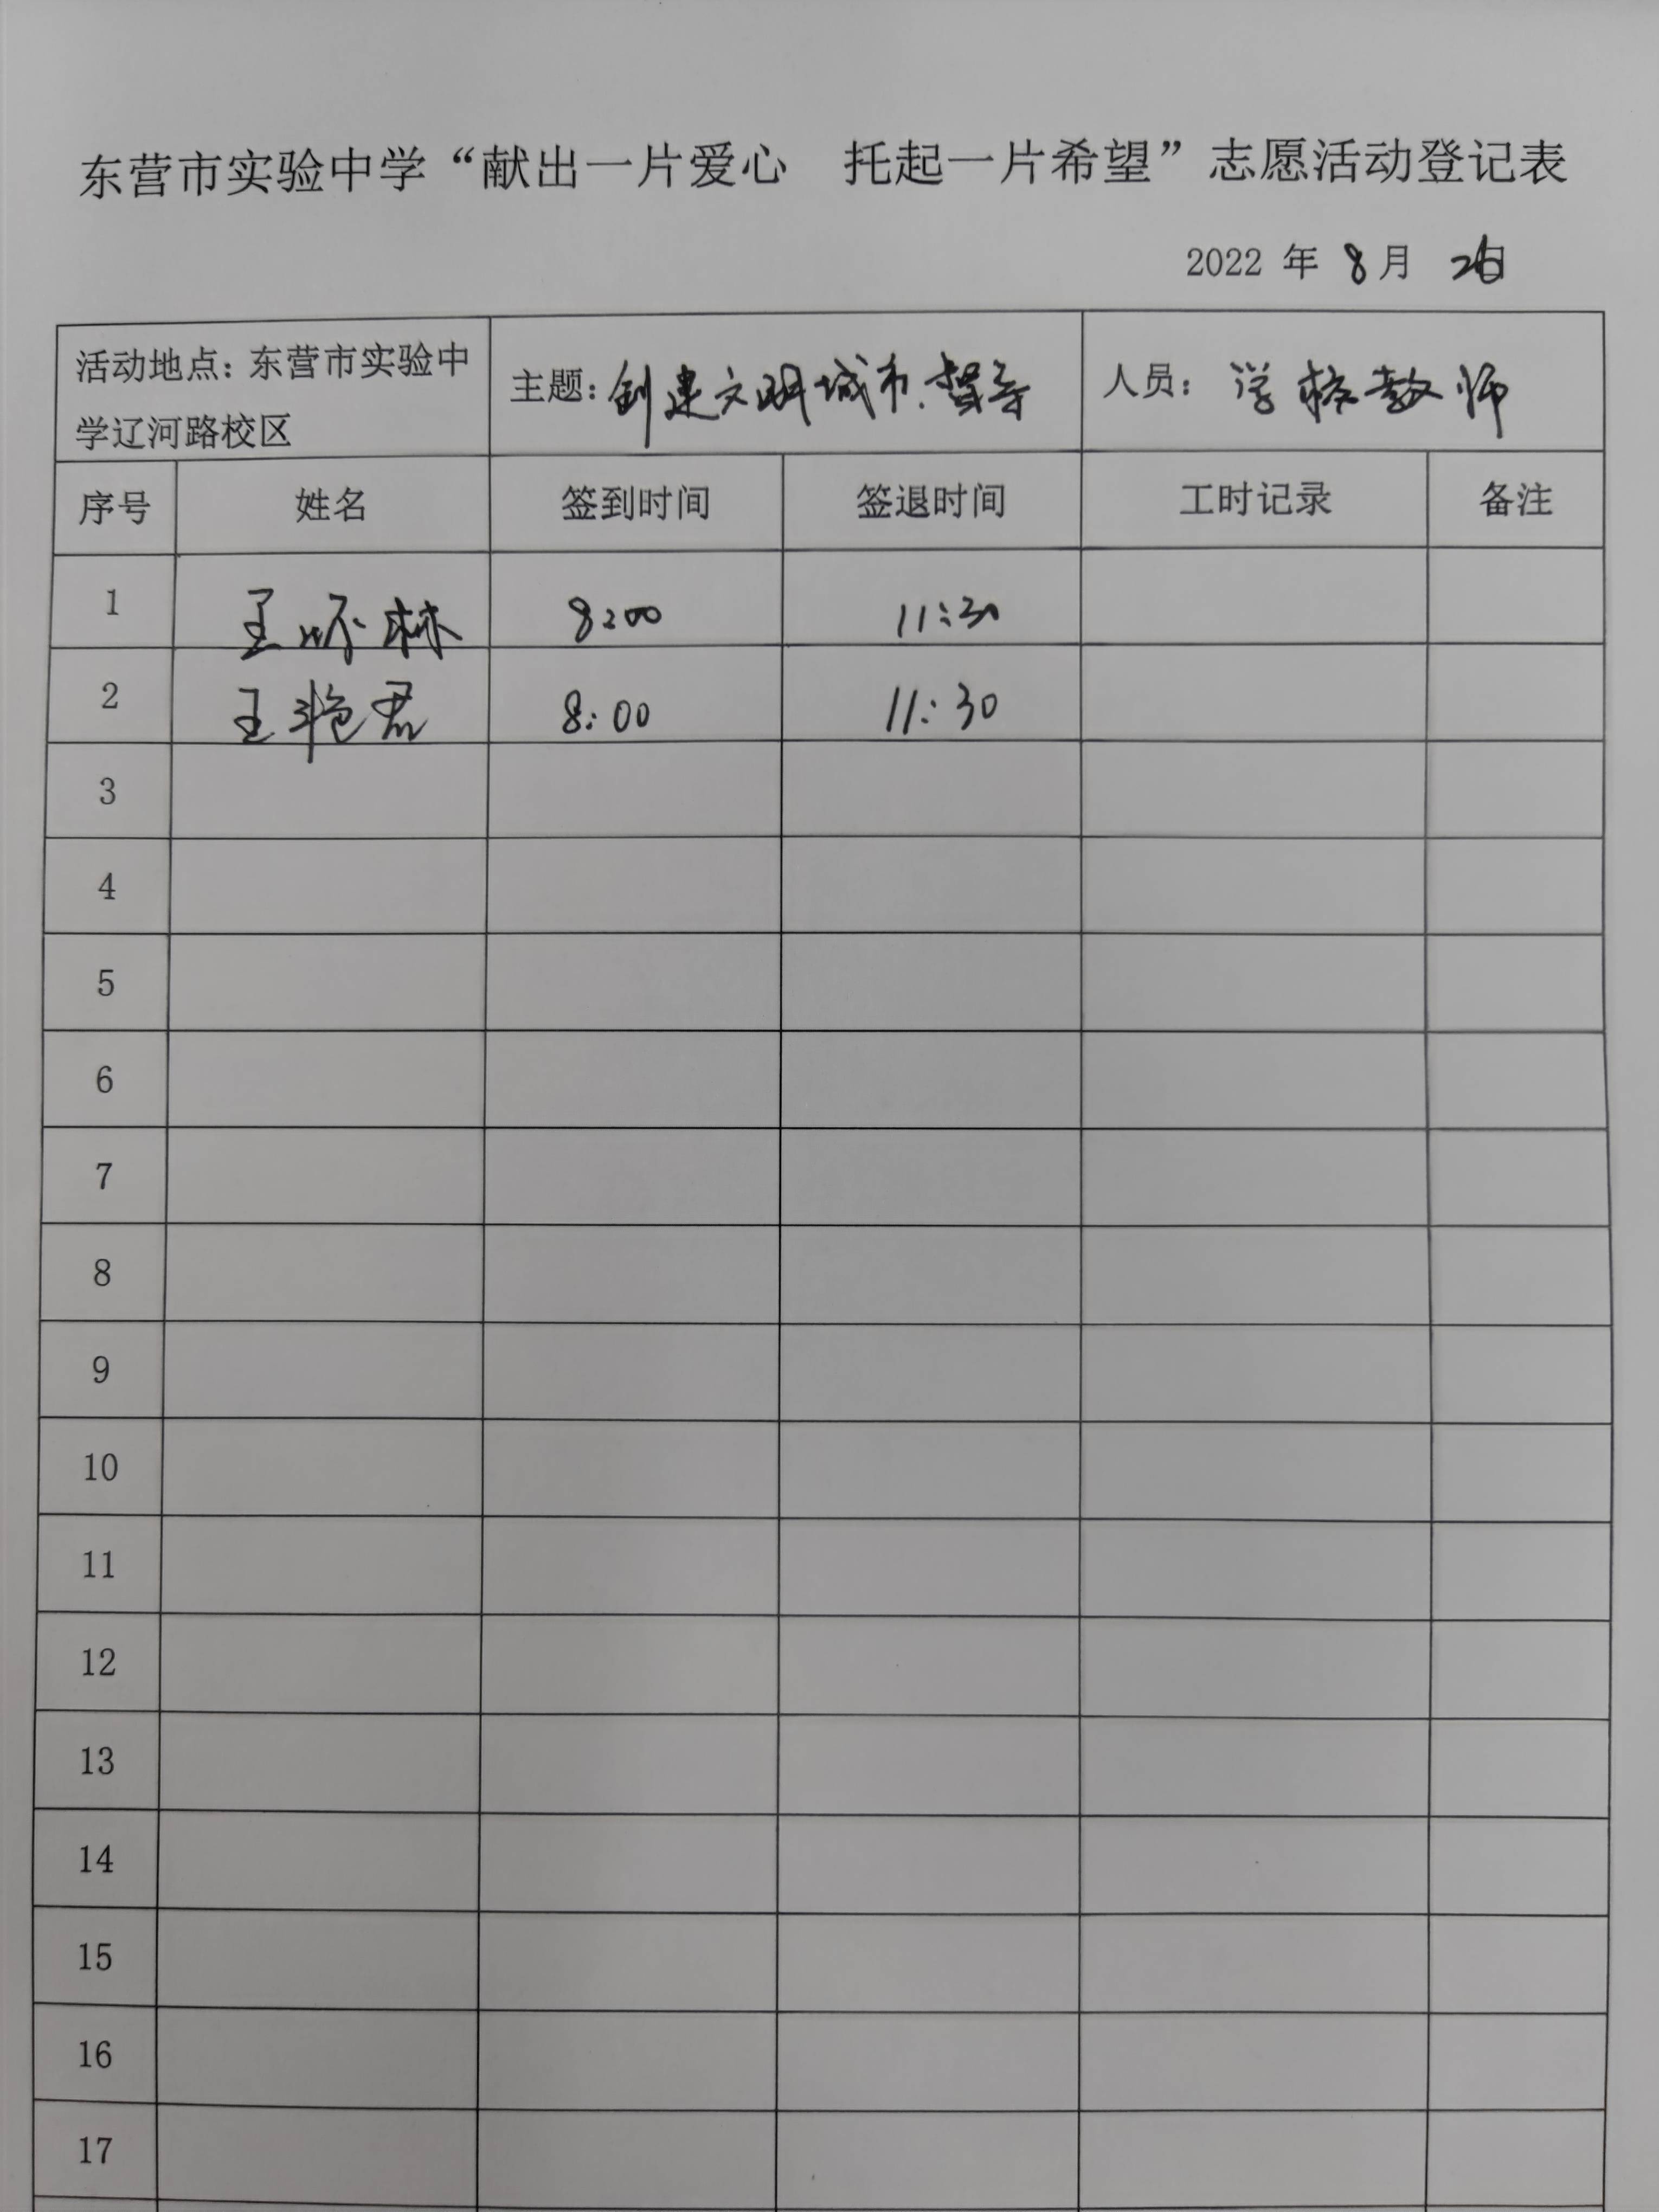 东营市实验中学“献出一片爱心 托起一片希望”志愿活动登记表
2022 年 8 月 26日
活动地点：东营市实验中
学辽河路校区
主题：创建文明城市.督导
人员：学校教师
序号 姓名 签到时间 签退时间 工时记录 备注
1 王 林 8:00 11:30
2 王艳君 8:00 11:30
3
4
5
6
7
8
9
10
11
12
13
14
15
16
17